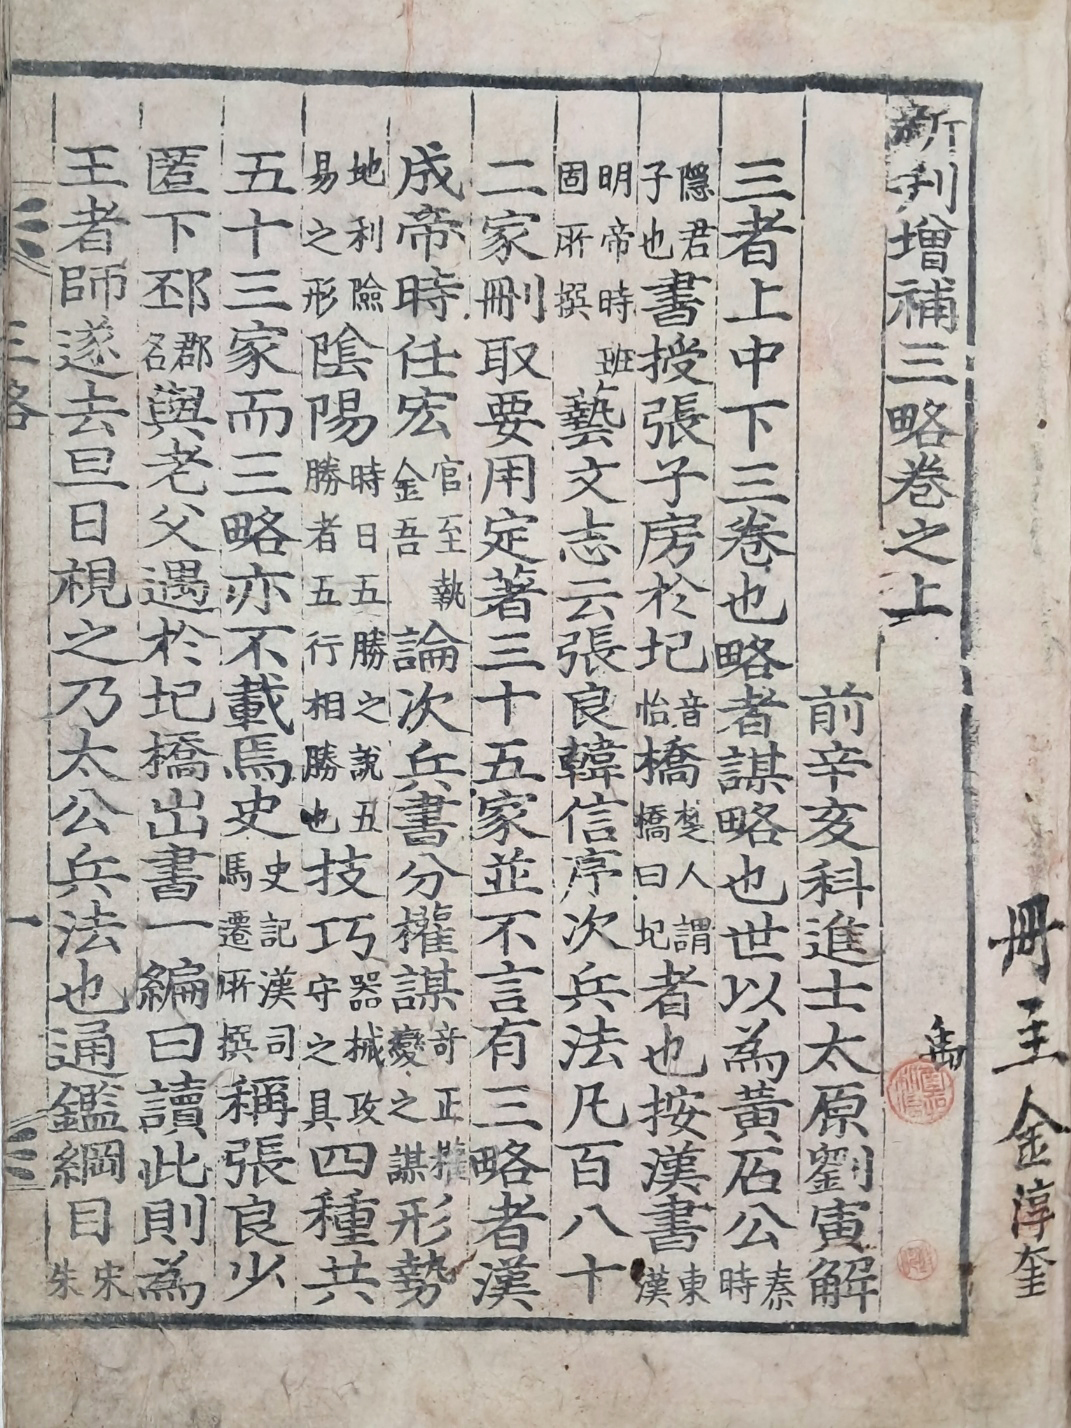 冊主金淳奎
新刋增補三略卷之上
前辛亥科進士太原劉寅解
三者上中下三卷也略者謀略也世以為黃石公秦時
隱君子也書授張子房於圯音怡橋楚人謂橋曰圯者也按漢書東漢
明帝時班固所撰藝文志云張良韓信序次兵法凡百八十
二家刪取要用定著三十五家並不言有三略者漢
成帝時任宏官至執金吾論次兵書分權謀奇正權變之謀形勢
地利險易之形陰陽時日五勝之說五勝者五行相勝也技巧器械攻守之具四種共
五十三家而三略亦不載焉史史記漢司馬遷所撰稱張良少
匿下邳郡名與老父遇於圯橋出書一編曰讀此則為
王者師遂去旦日視之乃太公兵法也通鑑綱目宋朱
三略 一